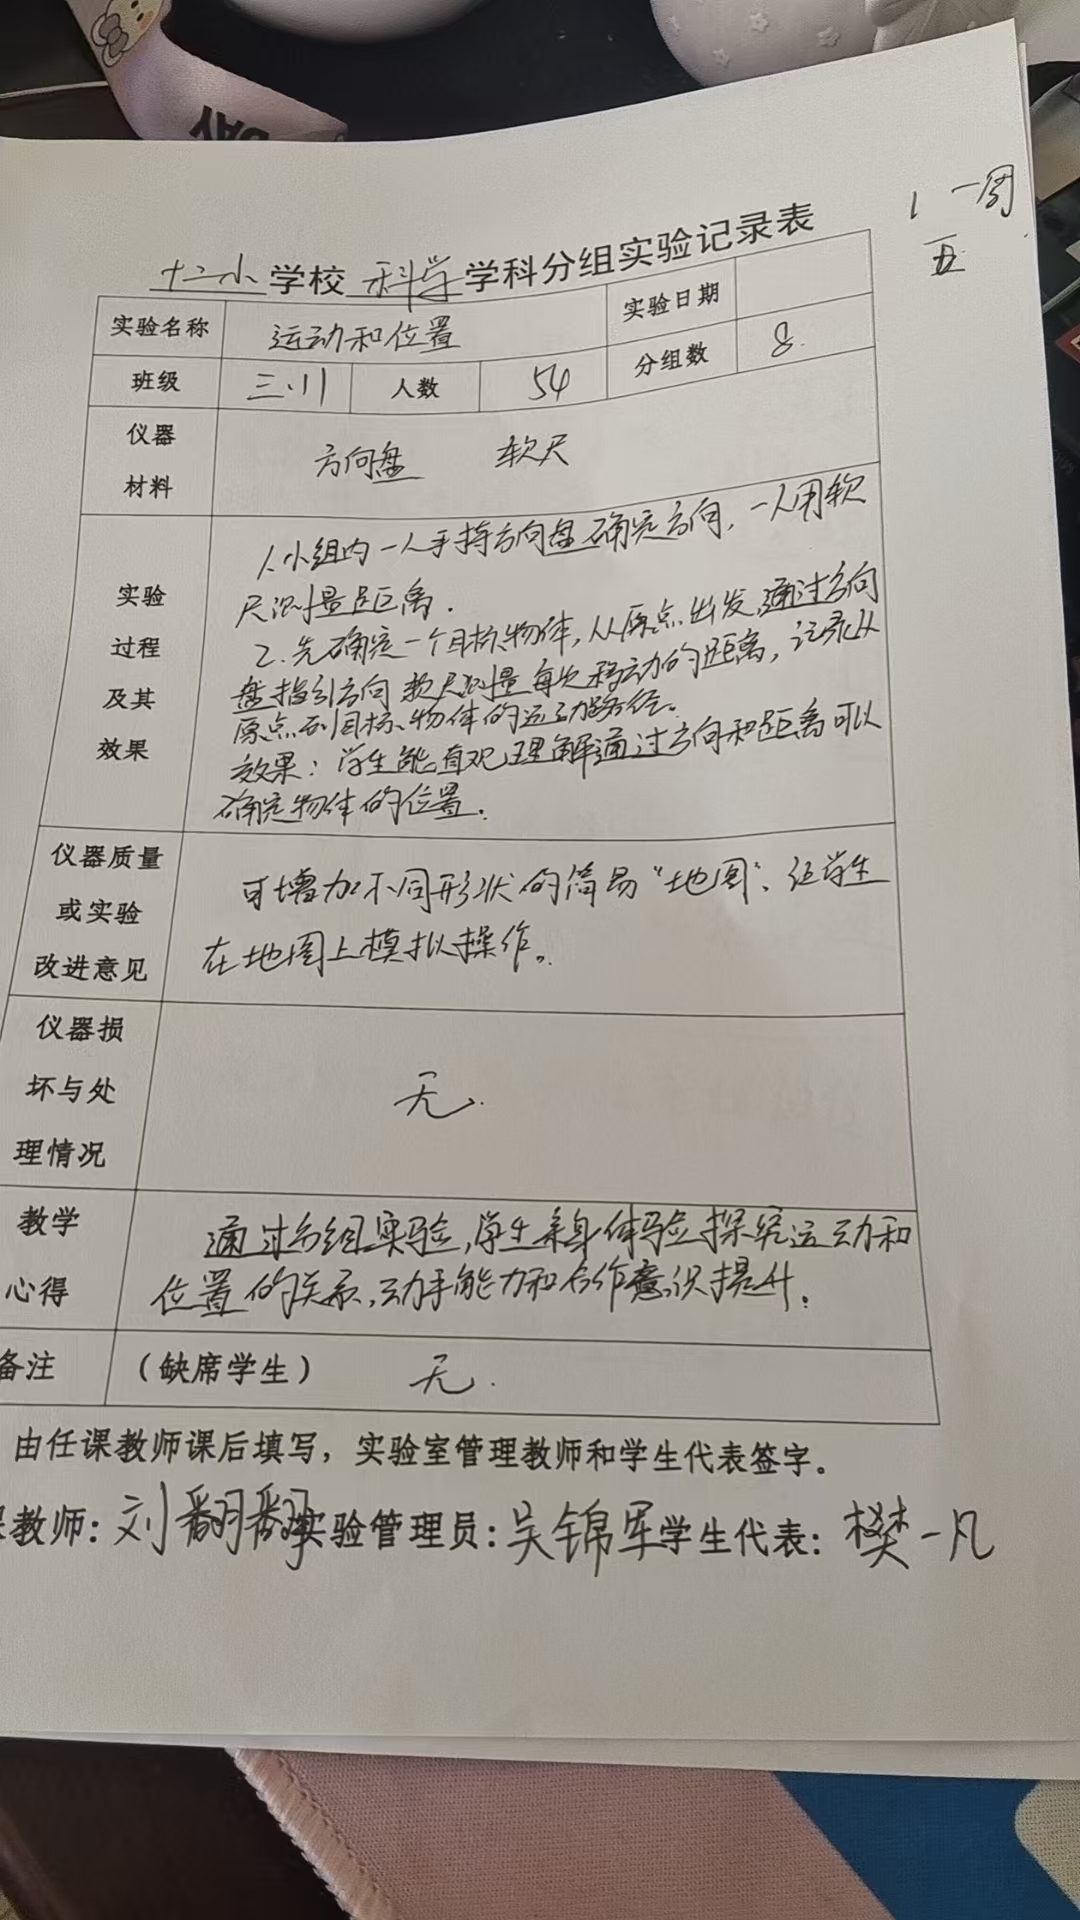 DAY
1 一周
五
十二小学校科学学科分组实验记录表
实验名称 运动和位置 实验日期
班级 三.11 人数 54 分组数 8.
仪器材料 方向盘 软尺
实验过程及其效果
1.小组内一人手持方向盘确定方向,一人用软
尺测量距离.
2.先确定一个目标物体,从原点出发,通过方向
盘指引方向 软尺测量每次移动的距离,记录从
原点到目标物体的运动路径。
效果:学生能直观理解通过方向和距离可以
确定物体的位置.
仪器质量或实验改进意见
可增加不同形状的简易“地图”,让学生
在地图上模拟操作。
仪器损坏与处理情况
无.
教学心得
通过分组实验,学生亲身体验探究运动和
位置的关系,动手能力和合作意识提升.
备注 (缺席学生) 无.
由任课教师课后填写,实验室管理教师和学生代表签字。
课教师:刘翻翻 实验管理员:吴锦军 学生代表:樊一凡